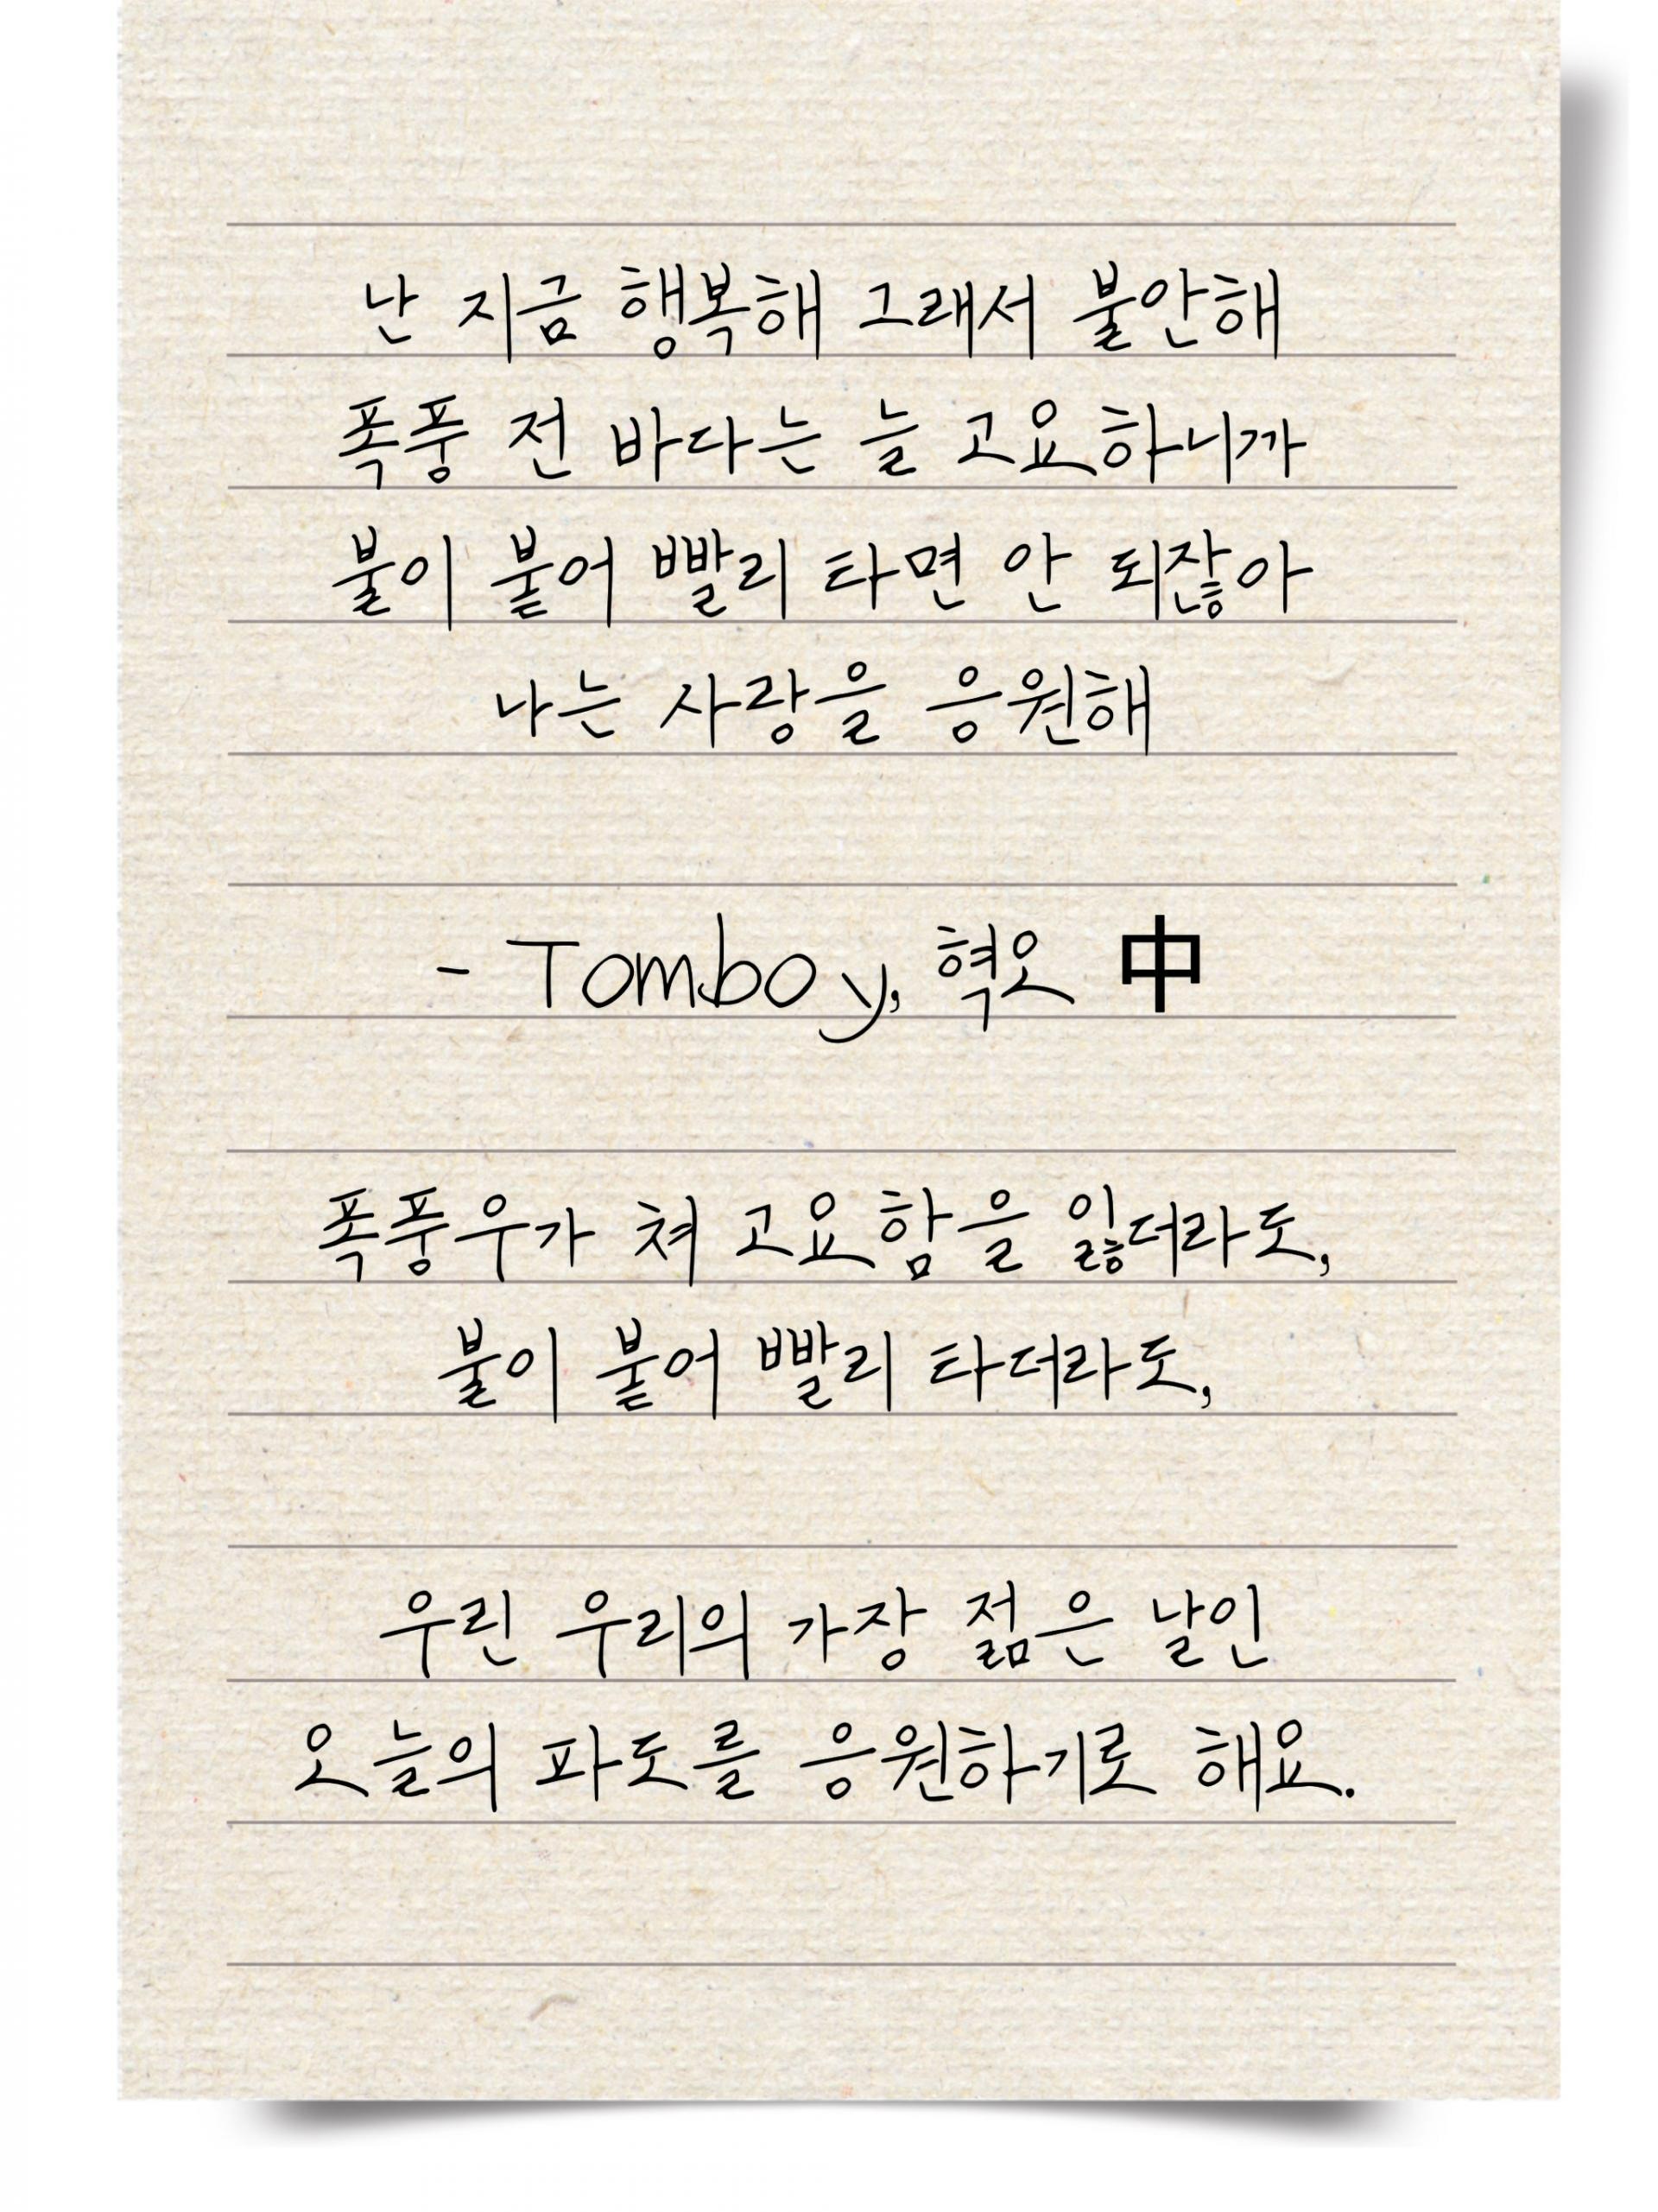 난 지금 행복해 그래서 불안해
폭풍 전 바다는 늘 고요하니까
불이 붙어 빨리 타면 안 되잖아
나는 사랑을 응원해
- Tomboy, 혁오 中
폭풍우가 쳐 고요함을 잃더라도,
불이 붙어 빨리 타더라도,
우린 우리의 가장 젊은 날인
오늘의 파도를 응원하기로 해요.